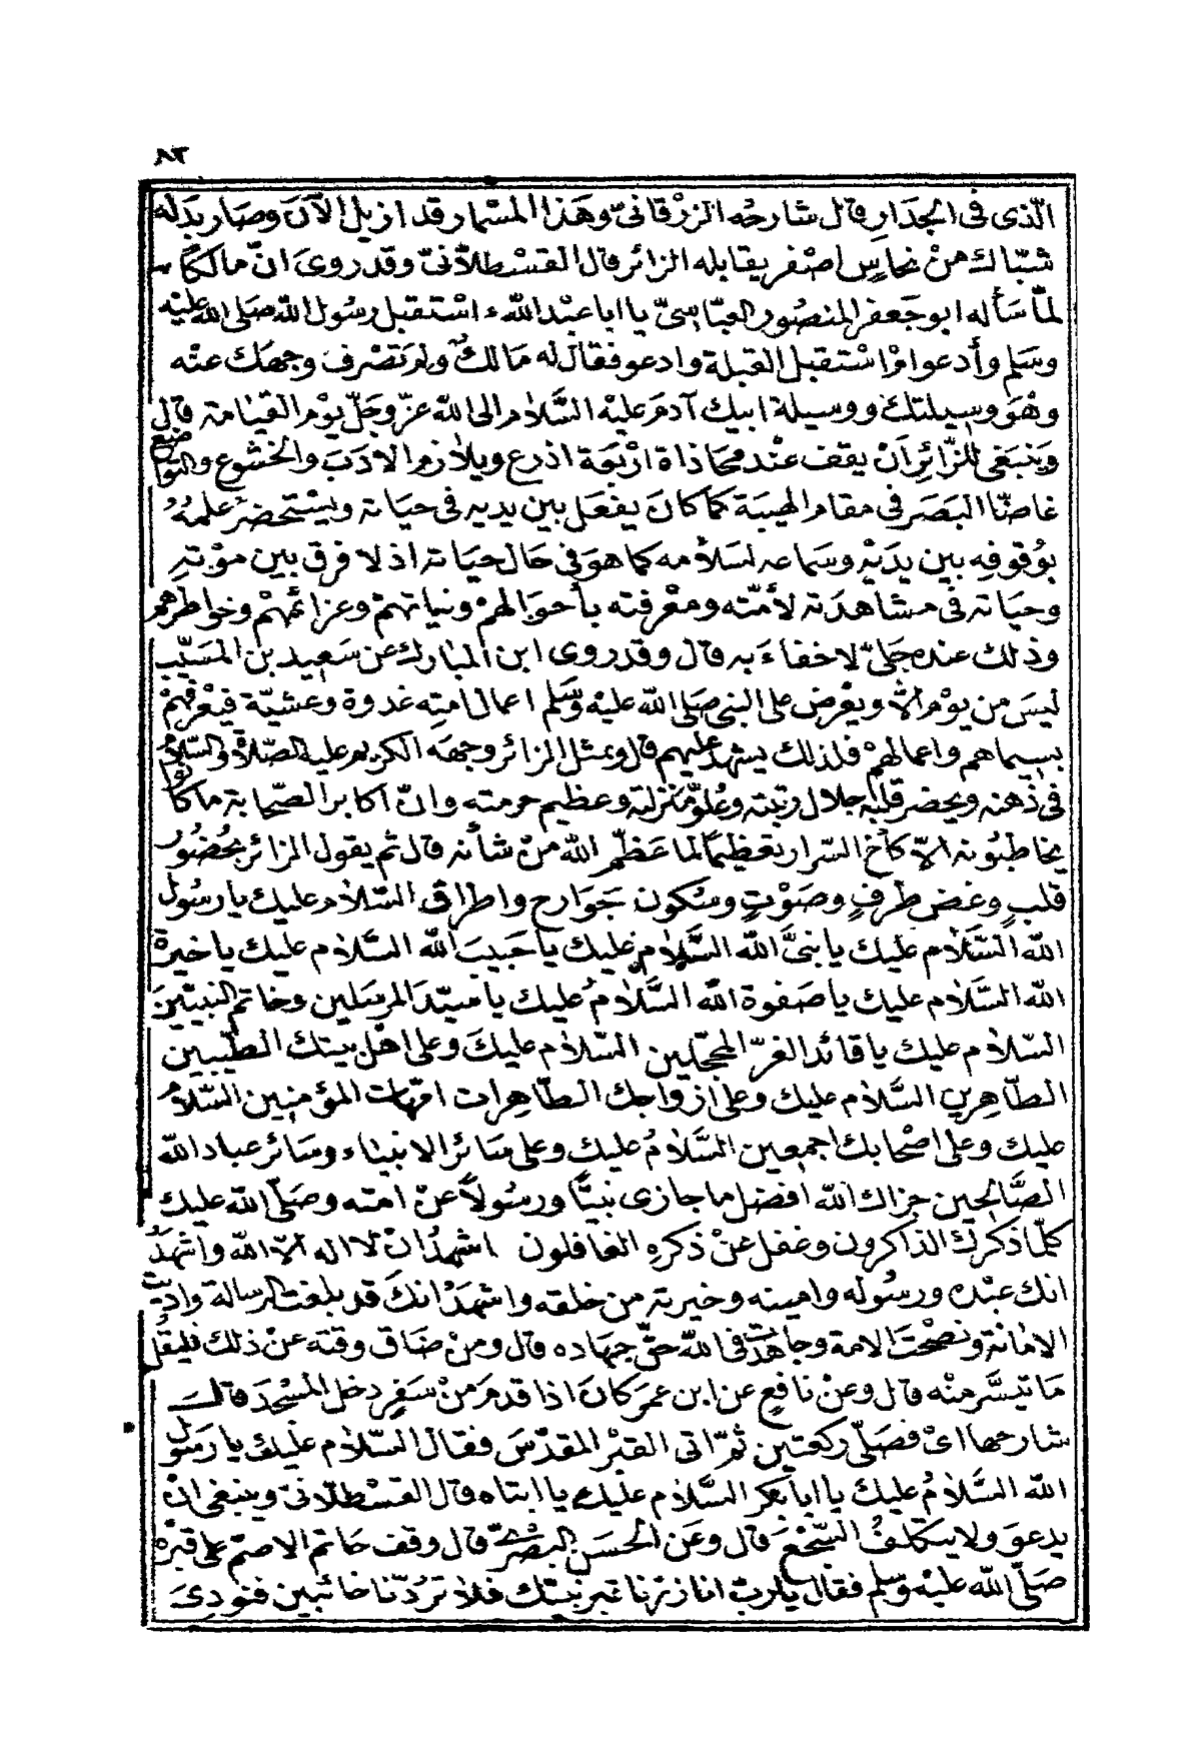 ٨٣
الّذى فى الجدَارِ قال شارحُه الزرْقانىّ وهَذا المسْمار قد ازيل الآنَ وصَار بدَله
شبّاك منْ نحاسٍ اصْفر يقابله الزائر قال القسْطلاّنىّ وقد روىَ انّ مالكًا
لمّا سَأله ابو جَعفر المنصُور العبّاسىّ يا ابا عبْد اللّه ء اسْتقبل رسُول اللّه صَلى اللّه عليْه
وسَلم وأدعوا مْ اسْتقبل القبلة وادعو فقال له مَالكٌ ولِمَ تصْرف وجهَك عنْه
وهْوَ وسيلتك ووسيلة ابيك آدمَ عليْه السَّلام الى اللّه عزّ وجَلّ يوْم القيَامة قال
وَينبَغى للزّائرِ اَنْ يقف عنْد محَاذاة ارْبَعة اذرع ويلازم الادَبَ والخشوع والتواضع
غاضّا البَصَر فى مقام الهيبَة كمَا كانَ يفعَل بين يديه فى حيَاته ويسْتحضرُ علمَهُ
بوُقوفِه بين يدَيْه وسَماعه لسَلامه كما هوَ فى حَال حيَاته اذ لا فرق بين موْتهِ
وحيَاته فى مشاهدَته لأمّته ومعْرفته بأحوَالهمْ ونياتهمْ وعزائمهْم وخواطرهم
وذلك عنده جَلىّ لا خفاءَ به قال وقد روى ابن المبَارك عن سَعيد بن المسَيّب
ليسَ من يوْم الاّ ويعْرض على النبى صَلى اللّه عليْه وسَلم اعمال امتِه غدوة وعشيّة فيعْرفهمْ
بسيماهم واعمالهمْ فلذلك يشهد عليهم قال ويمثل الزائر وجهَه الكريم عليه الصّلاة والسّلام
فى ذهنه ويحضر قلبَه جلال رتبَته وعُلوّ منزلته وعظيم حرمته وانّ اكابر الصّحابة ما كانوا
يخاطبُونه الاّ كأخ السّرار تعظيمًا لما عَظّم اللّه منْ شأنه قال ثم يقول الزائر بحُضُور
قلبٍ وغض طرفٍ وصَوْتٍ وسُكون جَوارح واطراق السّلام عليك يا رسُول
اللّه السَّلام عليك يا نبىَّ اللّه السَّلام عليك يا حَبيبَ اللّه السَّلام عليك يا خيرة
اللّه السَّلام عليك يا صَفوة اللّه السَّلامُ عليك يا سيّدَ المرسَلين وخاتم النبيّينَ
السّلام عليك يا قائد الغرّ المحجّلين السّلام عليكَ وعلى اهْل بيتك الطيّبين
الطّاهرين السَّلام عليك وعلى ازواجك الطّاهرات امّهات المؤمنين السّلام
عليك وعلى اصْحابك اجمعين السَّلامُ عليك وعلى سَائر الانبيَاء وسَائر عباد اللّه
الصَّالحين جزاك اللّه افضل ما جازى نبيًّا ورسُولاً عنْ امته وصَلّى اللّه عليك
كلّما ذكرك الذاكرون وغفل عنْ ذكرهِ الغافلون اشهدُ انْ لا اله الاّ اللّه واشهدُ
انك عبْده ورسُوله وامينه وخيرته من خلقه واشهَدُ انكَ قد بلغت الرسالة واديت
الامانة ونصَحْتَ الامة وجاهَدت فى اللّه حقّ جهَاده قال ومنْ ضَاق وقته عنْ ذلك فليقُل
مَا تيسَّر منْه قال وعنْ نافعٍ عن ابن عمرَ كانَ اذا قدمَ منْ سَفرٍ دخل المسْجدَ قال
شارحها اىْ فصَلّى ركعَتين ثمّ اتى القبْر المقدّسَ فقال السّلام عليك يا رسَول
اللّه السَّلامُ عليك يا ابا بكر السَّلام عليك يا ابتاه قال القسْطلاّنىّ وينبغى انْ
يدعوَ ولا يتكلفُ السّجْعَ قال وعَن الحسَن البصْرىّ قال وقف حَاتم الاصمّ على قبْره
صَلّى اللّه عليْه وسَلم فقال يا ربّ انا زرْنا قبر نبيّك فلا تردّنا خائبين فنودِىَ